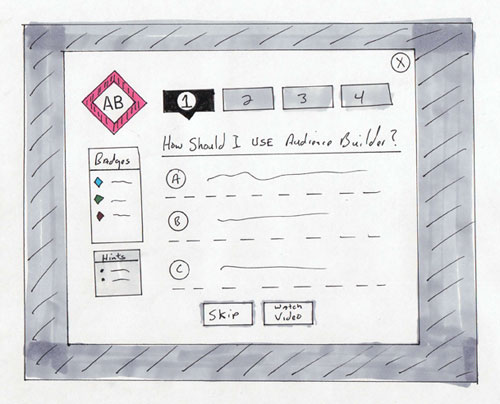 X
AB
1 2 3 4
How Should I USE Audience Builder?
Badges
A
B
C
Hints
Skip
Watch
Video